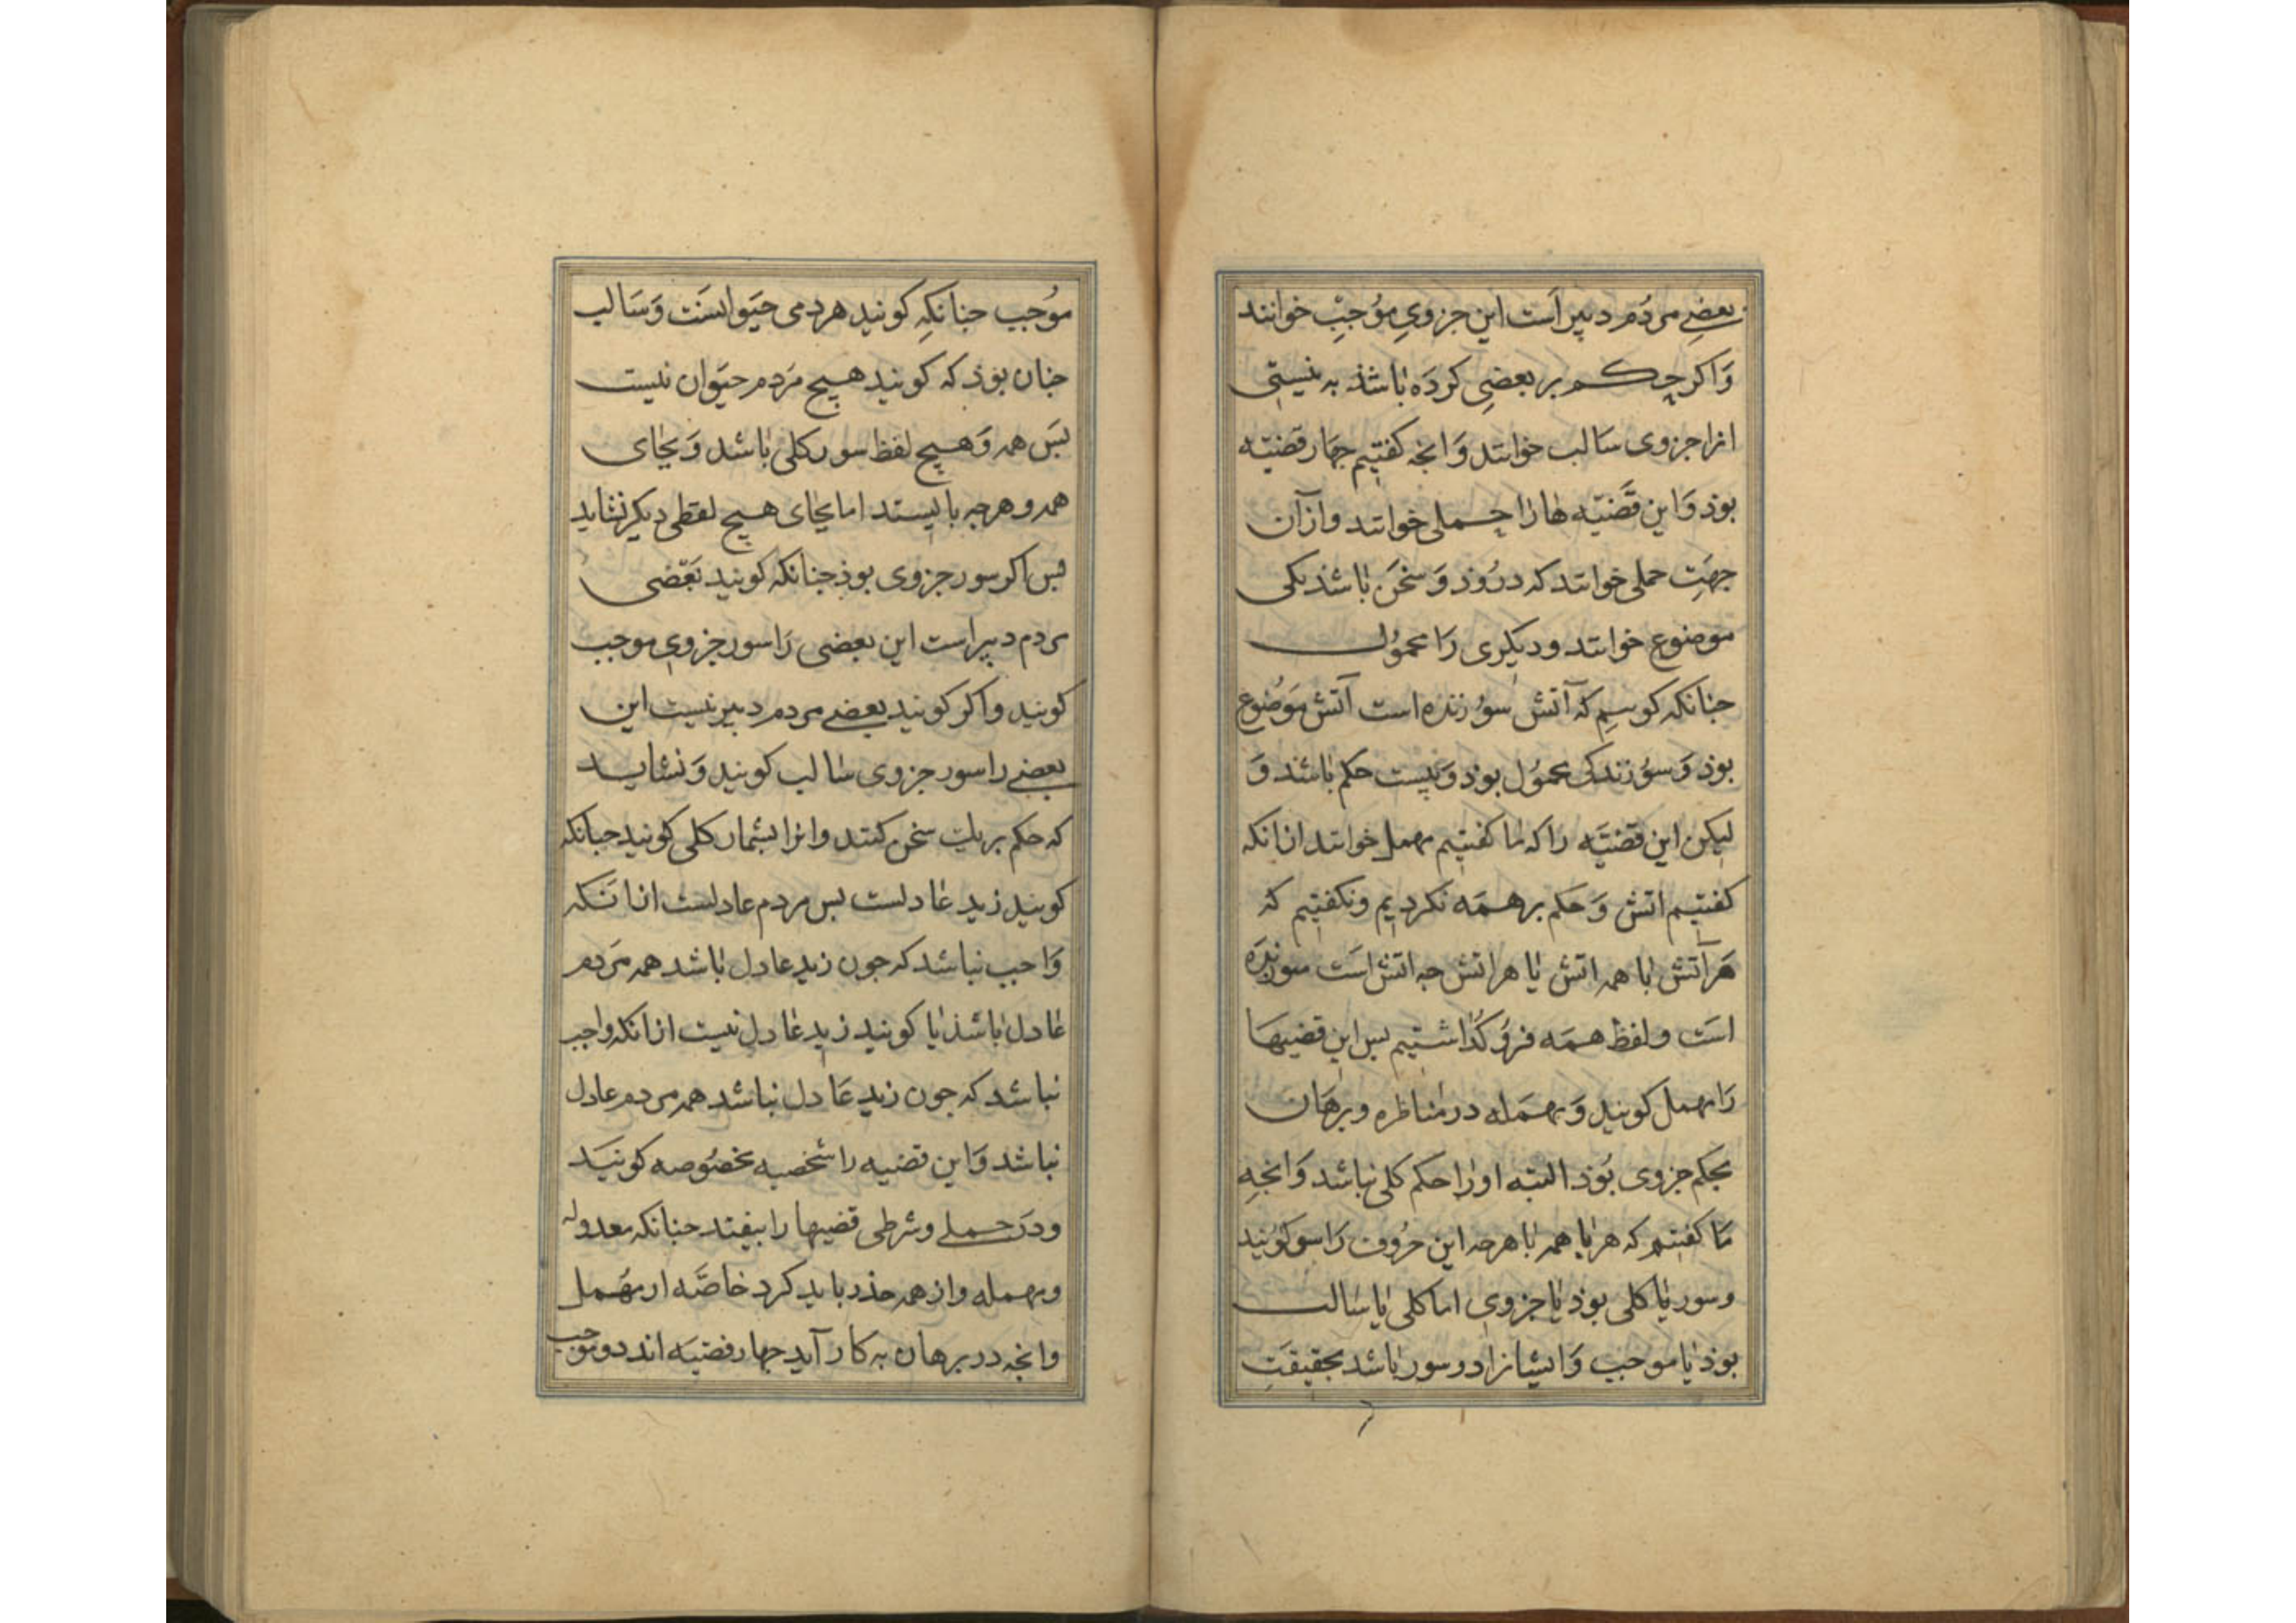 بعضے مردُم دبیر اَست این جزویِ موُجبِ خوانند
وَاکر حکم بر بعضیِ کردَه باشذ به نیستی
انرا جزوی سَالب خوانند وَانجه کفتیم جهار قضیّه
بوذ وَاین قَضیّه هَا رَا حملی خوانند وازآن
جهَتِ حملی خوانند که درُوذ وَ سخَن باشذ یکی
موضوع خوانند ودیکری رَا محموُل
جنانکه کوییمِ که آتش سوُزنده است آتش موَضوُع
بوذ وَسوُزندکی محموُل بوذ وَنیست حکم باشد وَ
لیکن این قضیَّه راکه ما کفتیم مهمل خوانند ازانکه
کفتیم اتش وَ حکم بر همَه نکردیم ونکفتیم که
هَر آتش با همه اتش یا هر اتش جه اتش اَست سوزندَه
استَ ولفظ همَه فروُ کذُاشتیم بس این قضیهَا
رَا مهمل کویند وَمهمَله در مناظره وبرهَان
بحکم جزوی بُوذ البته اورا حکم کلی نباشد وَانجهِ
مَا کفتیم که هر یا همه با هرجه این حرُوف رَا سور کویند
وسور یا کلی بوذ یا جزوی اما کلی یا سالب
بوذ یا موجب وَایشانرا در سور باشد بحقیقَتِ
موُجب جنانکهِ کویند هردمی حَیوانسَت وَسَالب
جنان بوَذ که کویند هیج مَردم حیَوان نیست
بسَ همه وَهیج لفظ سور کلی باشد وَبجای
همه وهرجه بایستد اما بجای هیج لفظی دیکر نشاید
بس اکر سور جزوی بوذ جنانکه کویند بَعَضی
مردم دبیر است این بعضی رَا سور جزوی موجب
کویند واکر کویند بعضے مردم دبیر نیست این
بعضے را سور جزوی سالب کویند وَنشاید
که حکم بر یک سخن کنند وانرا بشمار کلی کویند جنانکه
کویند زید عادلست بس مردم عادلست ازانَکه
وَاجب نباشد که جون زید عادل باشد همه مرَدم
عادل باشذ یا کویند زید عادل نیست ازانکه واجب
نباشد که جون زید عَادل نباشد همه مردم عادل
نباشد وَاین قضیه را شخصیه مخصُوصه کوینَد
ودرَ حملے وشرطی قضیها را بیفتد جنانکه معدوله
ومهمله واز همه حذر باید کرد خاصَّه از مهُمل
وانجه در برهان به کار آید جهار قضیَه اند دو موجب